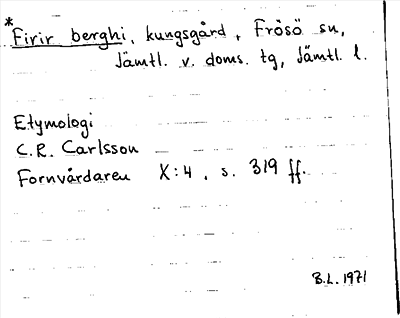 *Firir berghi, kungsgård, Frösö sn,
Jämtl. v. doms. tg, Jämtl. l.
Etymologi
C.R. Carlsson
Fornvårdaren X:4, s. 319 ff.
B.L. 1971